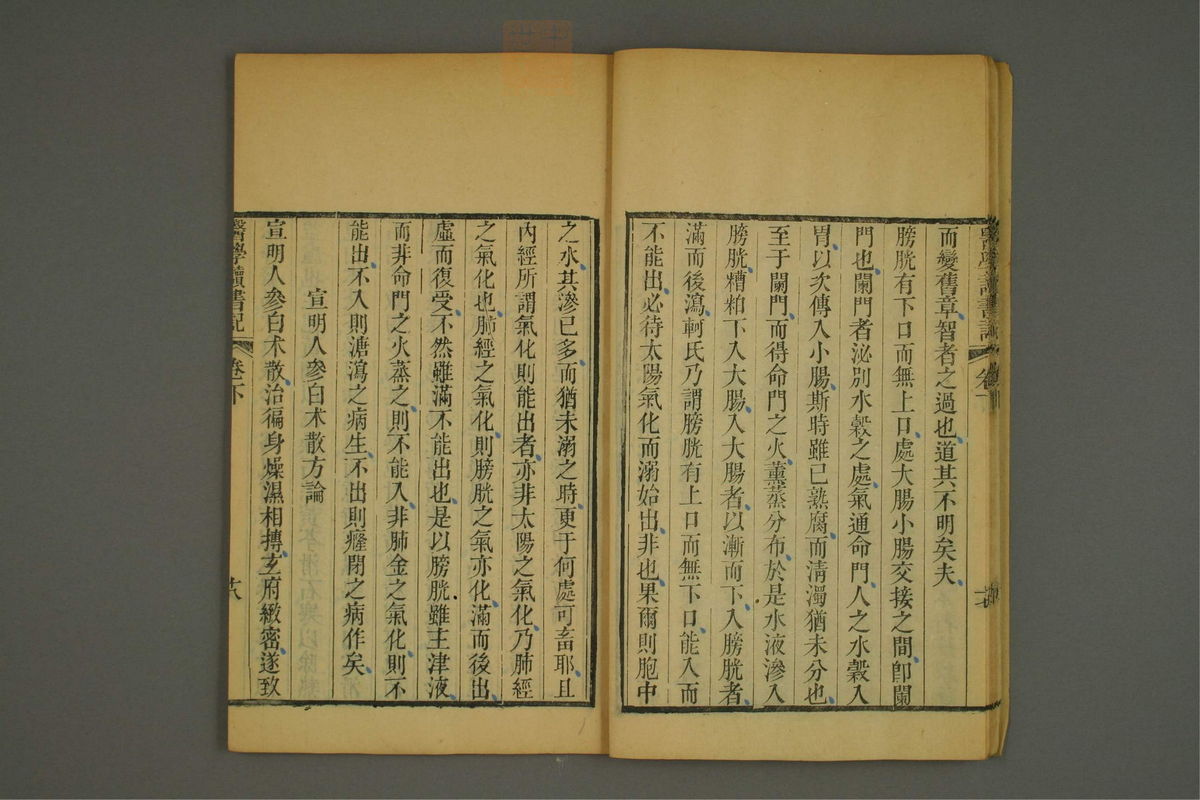 醫學讀書記 卷下
而變舊章智者之過也道其不明矣夫
膀胱有下口而無上口處大腸小腸交接之間卽闌
門也闌門者泌別水穀之處氣通命門人之水穀入
胃以次傳入小腸斯時雖已熟腐而淸濁猶未分也
至于闌門而得命門之火薰蒸分布於是水液滲入
膀胱糟粕下入大腸入大腸者以漸而下入膀胱者
滿而後瀉軻氏乃謂膀胱有上口而無下口能入而
不能出必待太陽氣化而溺始出非也果爾則胞中
之水其滲已多而猶未溺之時更于何處可畜耶且
內經所謂氣化則能出者亦非太陽之氣化乃肺經
之氣化也肺經之氣化則膀胱之氣亦化滿而後出
虛而復受不然雖滿不能出也是以膀胱雖主津液
而非命門之火蒸之則不能入非肺金之氣化則不
能出不入則溏瀉之病生不出則癃閉之病作矣
宣明人參白术散方論
宣明人參白术散治徧身燥濕相搏玄府緻密遂致
醫學讀書記 卷下 十八